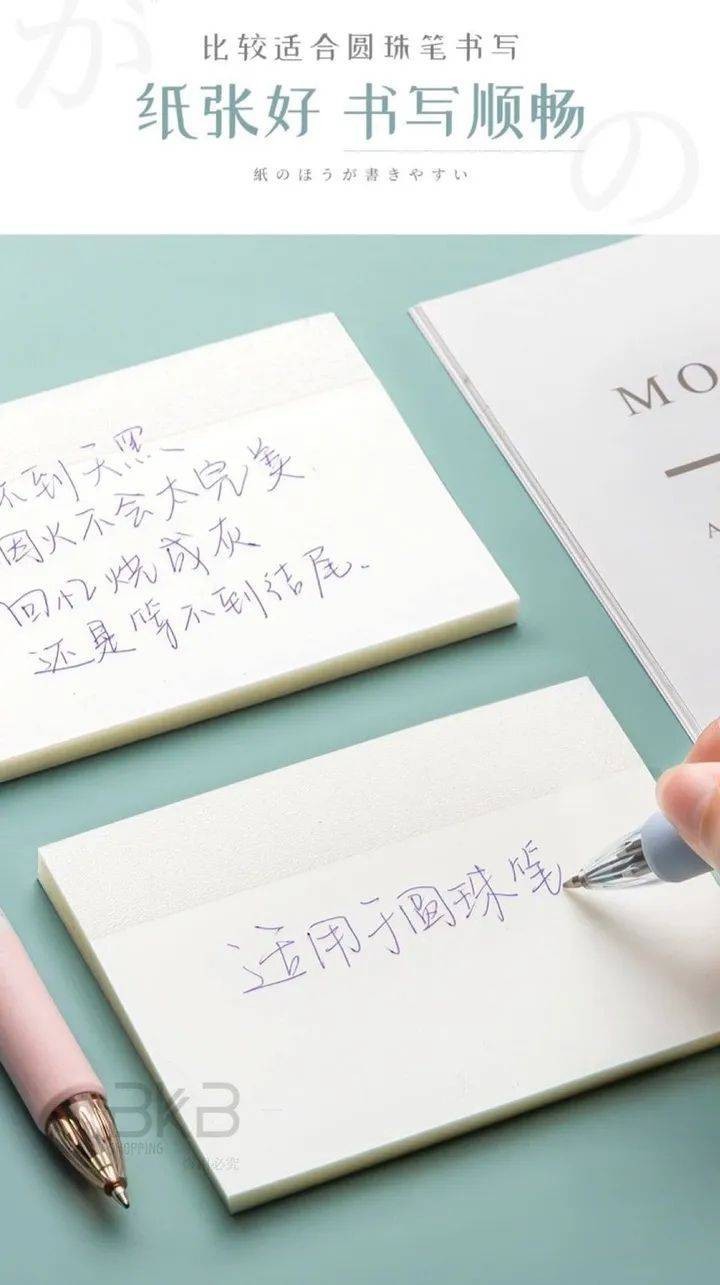 比较适合圆珠笔书写
纸张好 书写顺畅
紙のほうが書きやすい
が
の
不到天黑
烟火不会太完美
回忆烧成灰
还是等不到结尾.
MO
A
适用于圆珠笔
BKB
SHOPPING
必究